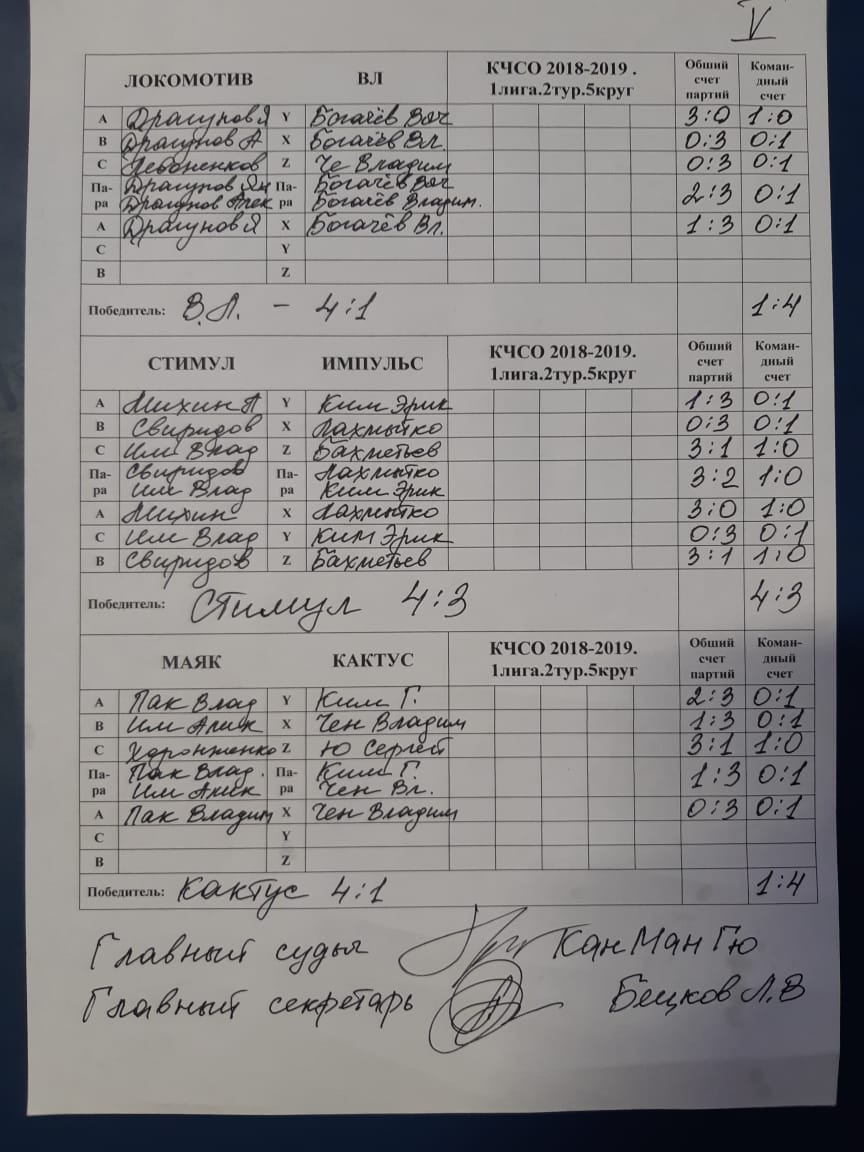 V
ЛОКОМОТИВ ВЛ КЧСО 2018-2019 . 1лига.2тур.5круг Общий счет партий Коман- дный счет
A Драгунов Я Y Богачёв Вяч 3:0 1:0
B Драгунов А X Богачёв Вл. 0:3 0:1
C Z Че Владим 0:3 0:1
Па- Драгунов Ян Па- Богачёв Вяч 2:3 0:1
ра Драгунов Алек ра Богачёв Владим.
A Драгунов Я X Богачёв Вл. 1:3 0:1
C Y
B Z
Победитель: В.Л. - 4:1 1:4
СТИМУЛ ИМПУЛЬС КЧСО 2018-2019. 1лига.2тур.5круг Общий счет партий Коман- дный счет
A Михин А Y Ким Эрик 1:3 0:1
B Свиридов X Лахмытко 0:3 0:1
C Им Влад Z Бахметьев 3:1 1:0
Па- Свиридов Па- Лахмытко 3:2 1:0
ра Им Влад ра Ким Эрик
A Михин X Лахмытко 3:0 1:0
C Им Влад Y Ким Эрик 0:3 0:1
B Свиридов Z Бахметьев 3:1 1:0
Победитель: Стимул 4:3 4:3
МАЯК КАКТУС КЧСО 2018-2019. 1лига.2тур.5круг Общий счет партий Коман- дный счет
A Пак Влад Y Ким Г. 2:3 0:1
B Им Алик X Чен Владим 1:3 0:1
C Харонженко Z Ю Сергей 3:1 1:0
Па- Пак Влад. Па- Ким Г. 1:3 0:1
ра Им Алик ра Чен Вл.
A Пак Владим X Чен Владим 0:3 0:1
C Y
B Z
Победитель: Кактус 4:1 1:4
Главный судья Кан Ман Гю
Главный секретарь Бецков Л.В